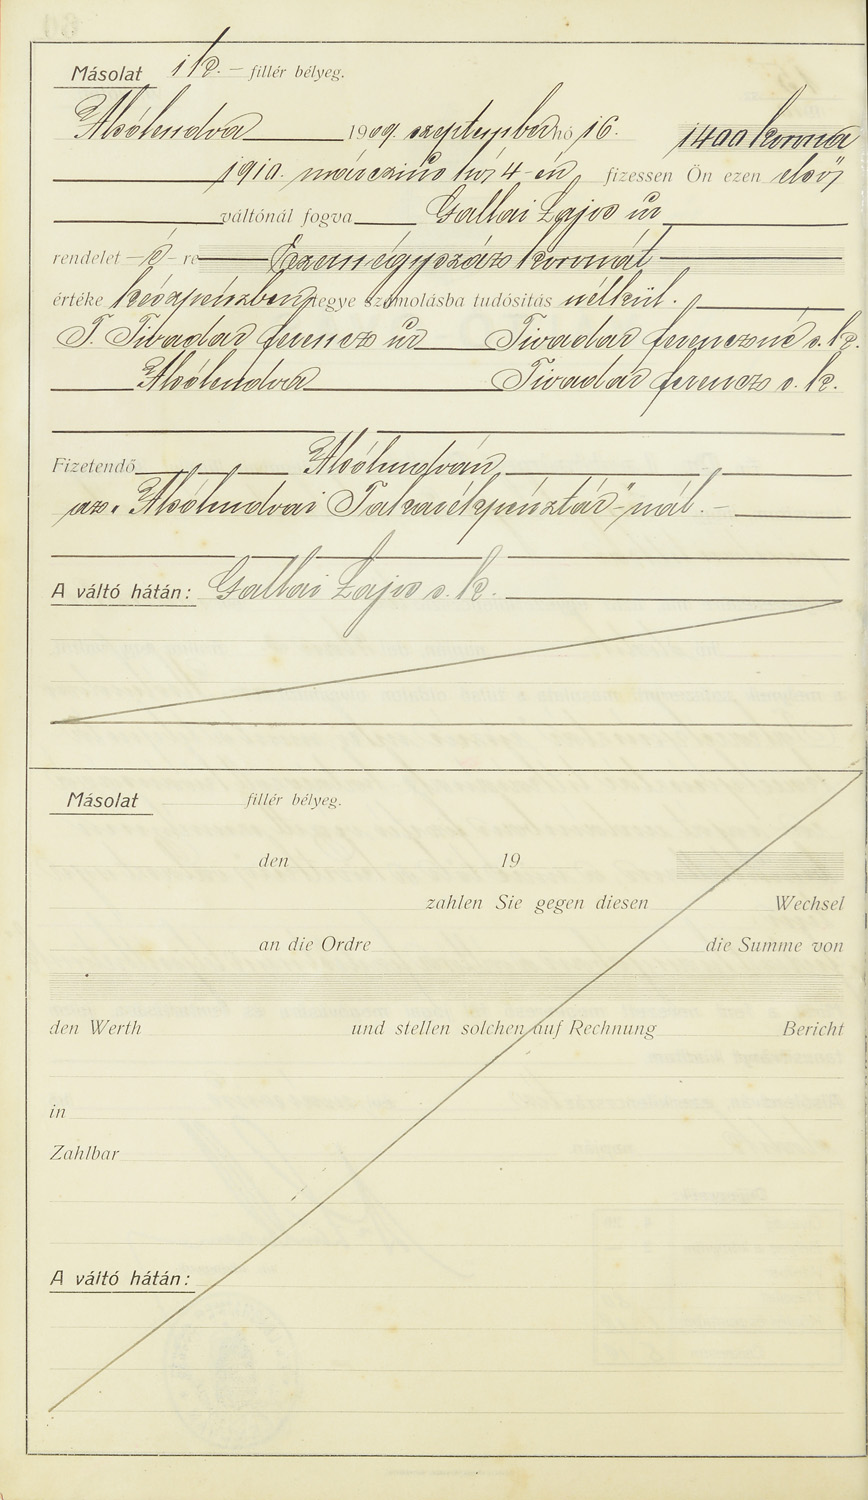 Másolat 1 k. – fillér bélyeg.
Alsólendva 1909. szeptember hó 16. 1400 korona
1910. márczius hó 4-én fizessen Ön ezen első
váltónál fogva Gallai Lajos úr
rendelet – é – re Ezernégyszáz koronát
értéke készpénzben tegye számolásba tudósítás nélkül.
T. Tivadar Ferencz úr Tivadar Ferenczné s. k.
Alsólendva Tivadar Ferencz s. k.
Fizetendő Alsólendván
az „Alsólendvai Takarékpénztár"-nál. –
A váltó hátán: Gallai Lajos s. k.
Másolat fillér bélyeg.
den 19
zahlen Sie gegen diesen Wechsel
an die Ordre die Summe von
den Werth und stellen solchen auf Rechnung Bericht
in
Zahlbar
A váltó hátán: